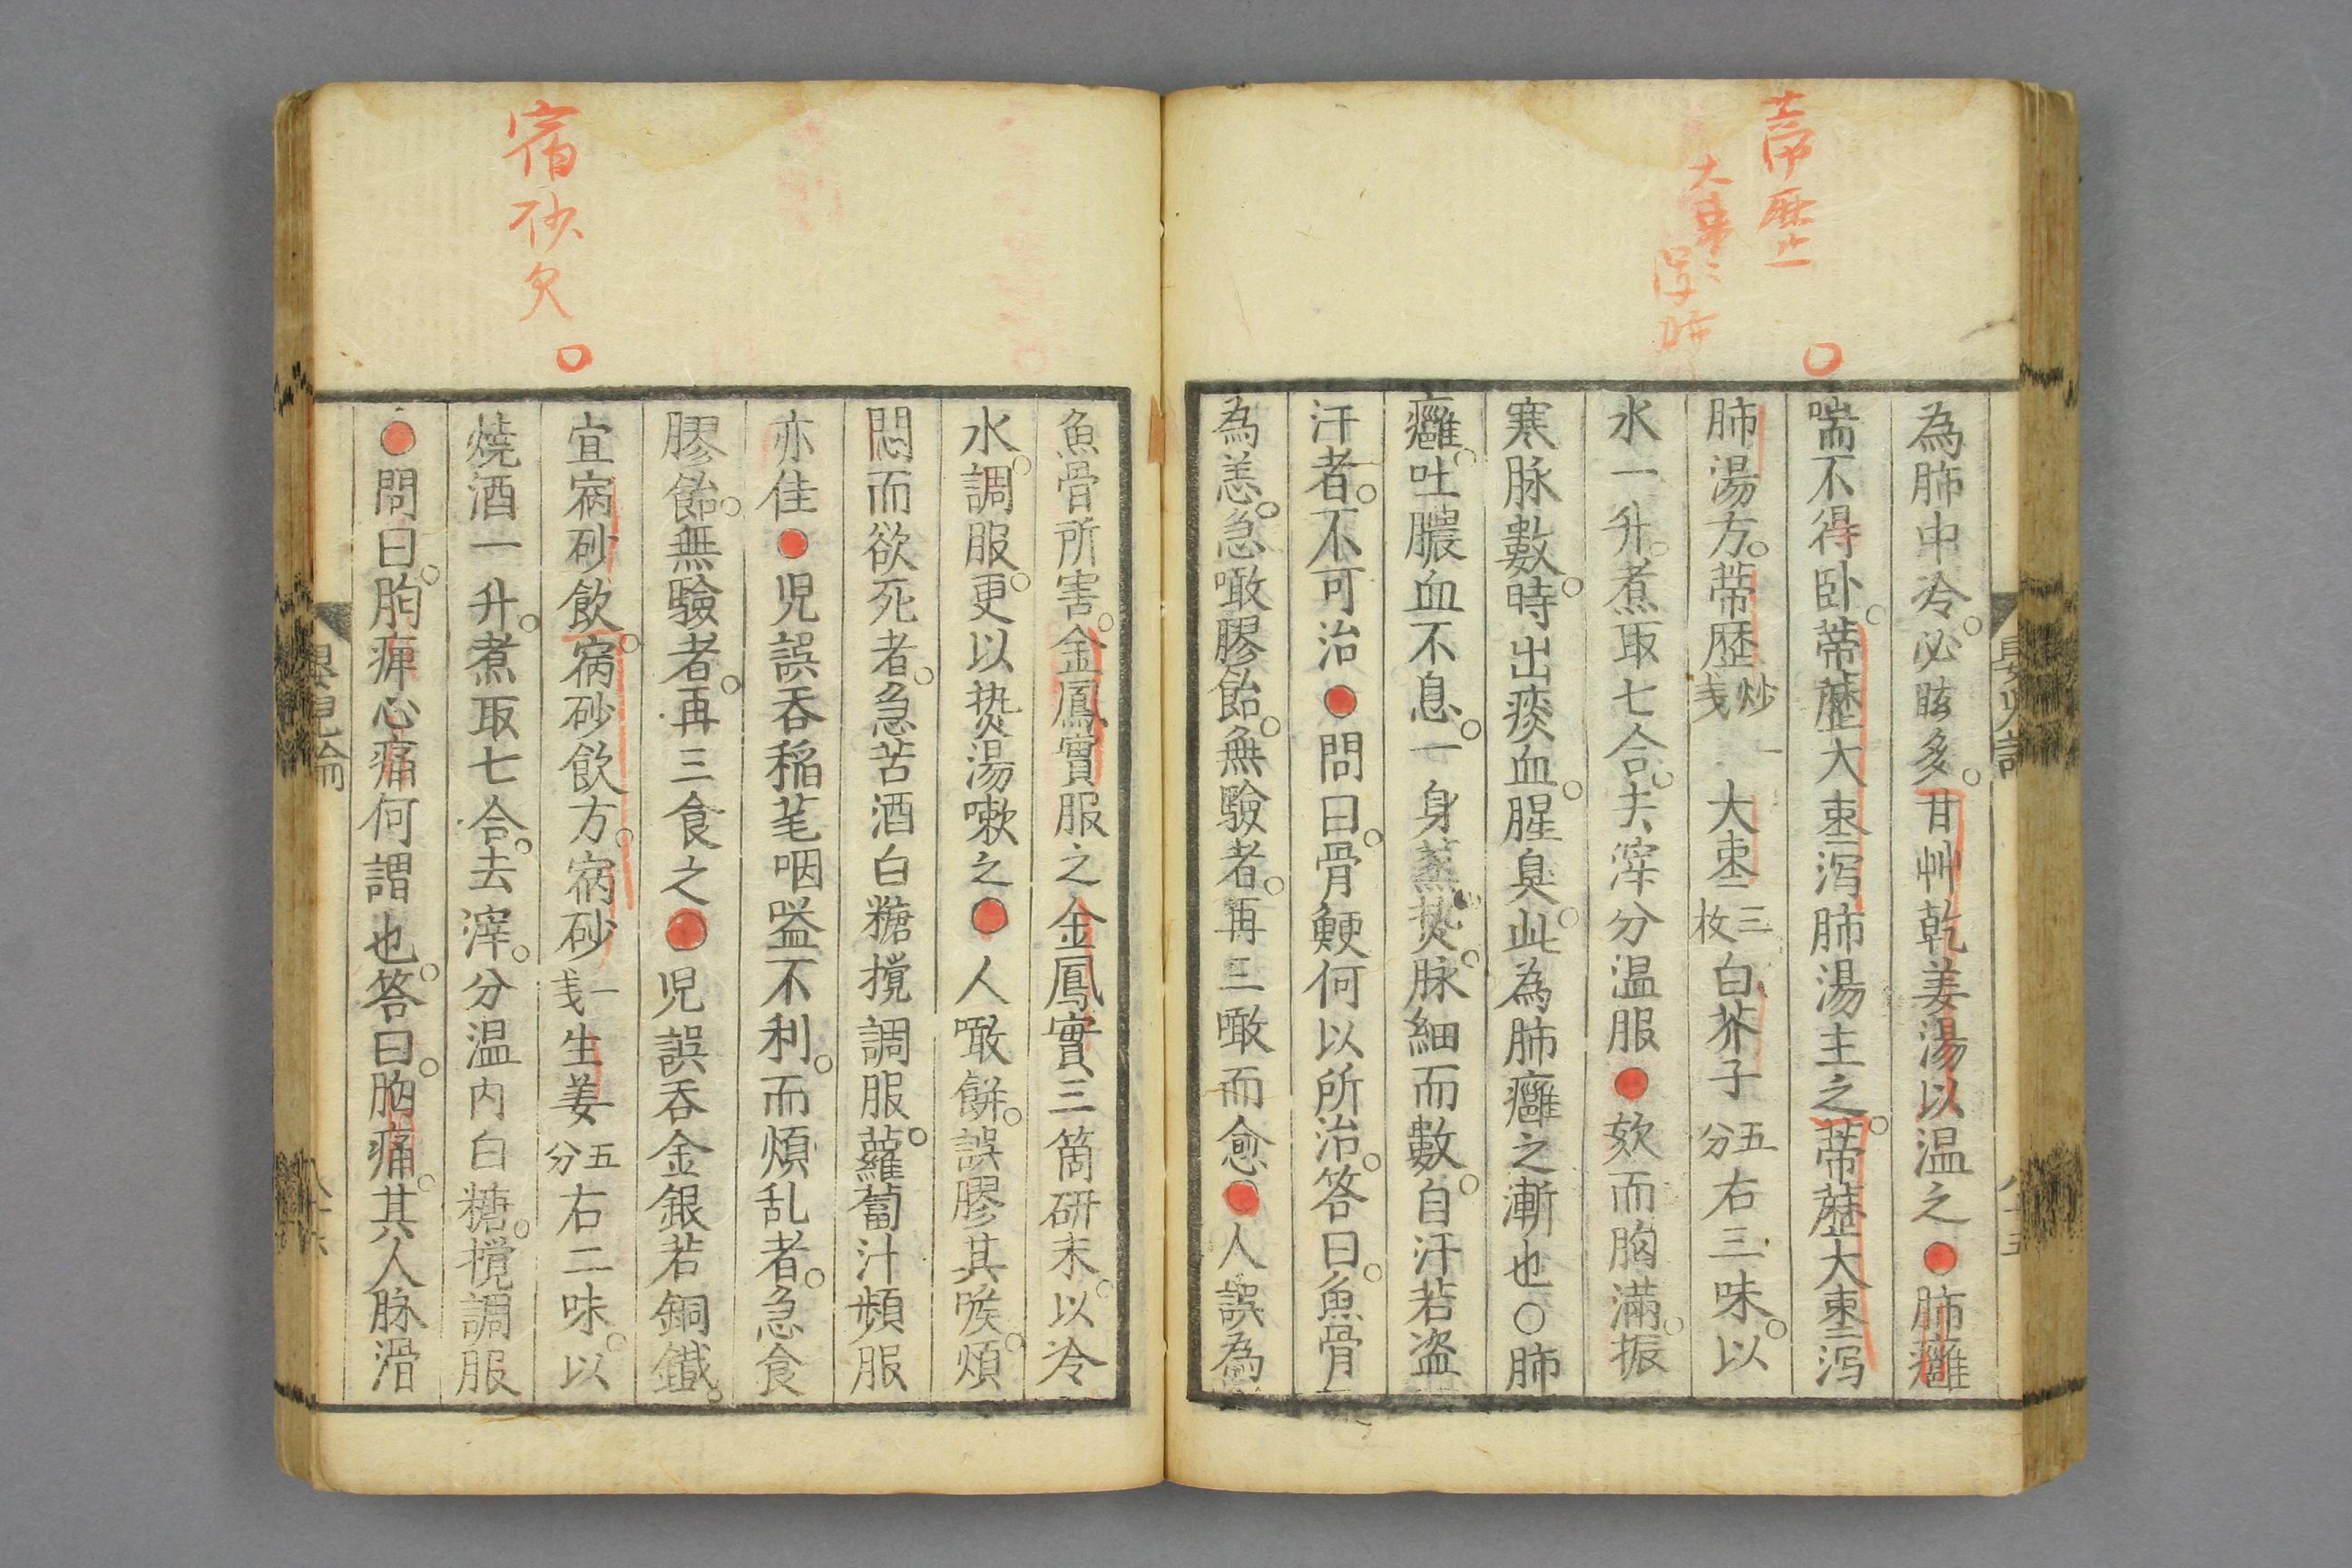 為肺中冷。必眩多。甘艸乾姜湯以温之●肺癰
喘不得卧。蔕藶大棗泻肺湯主之。蔕藶大棗泻
肺湯方。蔕歴炒戔一大棗三枚白芥子五分右三味。以
水一升。煮取七合。去滓分温服●欬而胸滿。振
寒脉數。時出痰血。腥臭。此為肺癰之漸也○肺
癰。吐膿血不息。一身蒸热。脉細而數。自汗若盗
汗者。不可治●問曰。骨鯁何以所治。答曰。魚骨
為恙。急噉膠飴。無驗者。再三噉而愈●人誤為
魚骨所害。金鳳實服之金鳳實三箇研末。以冷
水。調服。更以热湯嗽之●人噉餅。誤膠其喉。煩
悶而欲死者。急苦酒白糖攪調服。蘿蔔汁頻服
亦佳●児誤吞稲芼咽嗌不利。而煩乱者。急食
膠飴。無驗者。再三食之●児誤吞金銀若銅鐵。
宜宿砂飲。宿砂飲方。宿砂一戔生姜五分右二味。以
燒酒一升。煮取七合。去滓。分温内白糖。攪調服
●問曰。胸痺心痛何謂也。答曰。胸痛。其人脉滑
蔕歴
大棗
宿砂欠